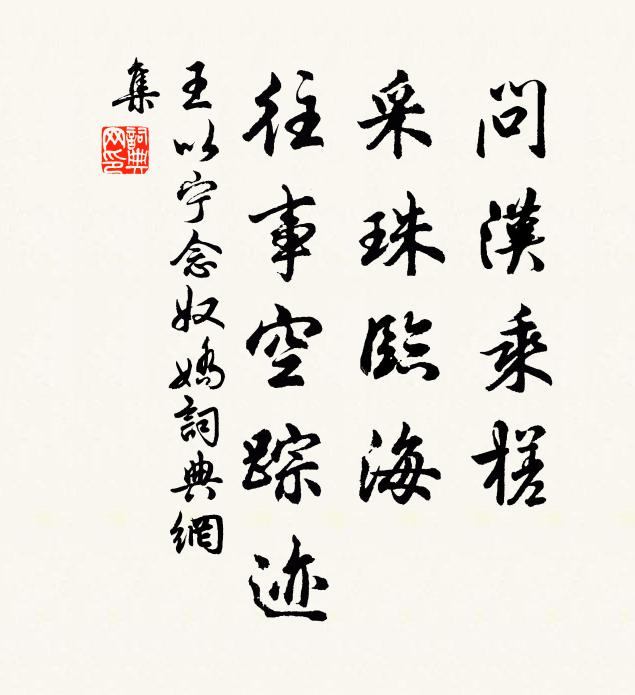 問漢乘槎
采珠臨海
往事空踪迹
王以宁念奴嬌詞典網
集
詞典网印